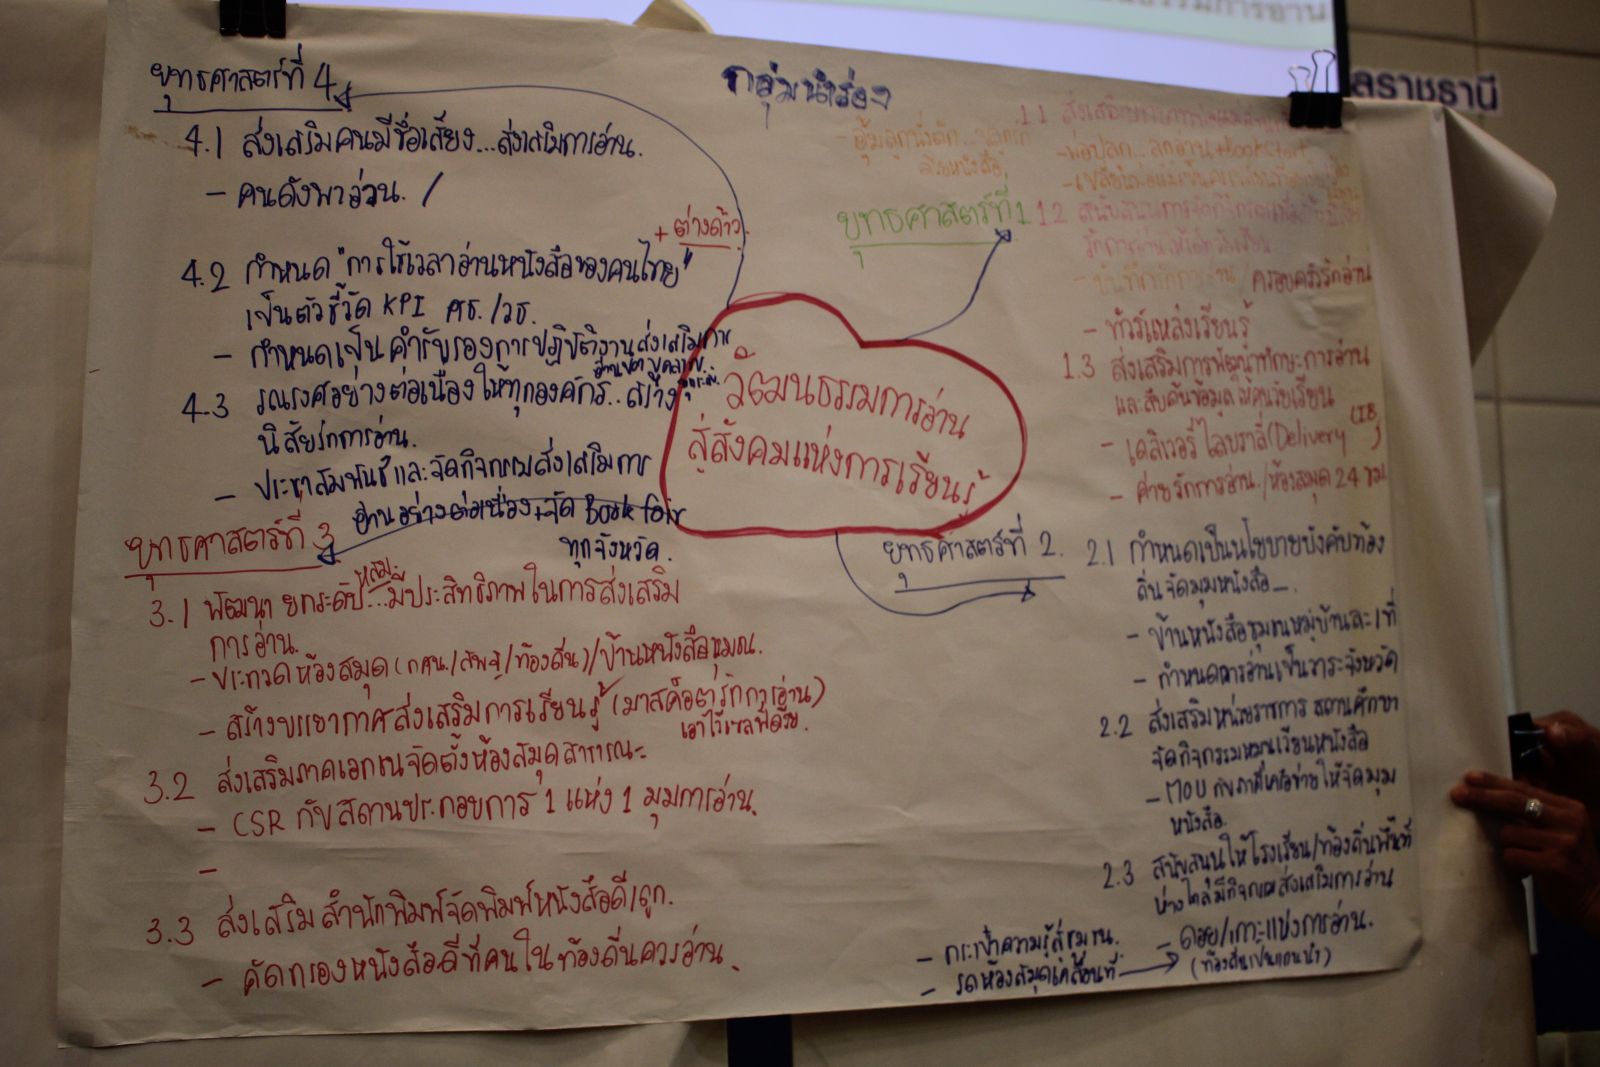 กลุ่มนำร่อง
ลราชธานี
วัฒนธรรมการอ่าน
สู่สังคมแห่งการเรียนรู้
ยุทธศาสตร์ที่ 1
1.1
- พ่อปลูก...ลูกอ่าน + Book Start
1.2 สนับสนุนการจัดกิจกรรม
/ ครอบครัวรักอ่าน
- ทัวร์แหล่งเรียนรู้
1.3 ส่งเสริมการพัฒนาทักษะการอ่าน
และสืบค้นข้อมูลให้คนวัยเรียน
- เดลิเวอรี่ ไลบรารี่ (Delivery
- ค่ายรักการอ่าน / ห้องสมุด 24 ชม
ยุทธศาสตร์ที่ 2.
2.1 กำหนดเป็นนโยบายบังคับท้อง
ถิ่นจัดมุมหนังสือ
- บ้านหนังสือชุมชนหมู่บ้านละ 1 ที่
- กำหนดการอ่านเป็นวาระจังหวัด
2.2 ส่งเสริมหน่วยราชการ สถานศึกษา
จัดกิจกรรมหมุนเวียนหนังสือ
- MOU กับภาคีเครือข่ายให้จัดมุม
หนังสือ
2.3 สนับสนุนให้โรงเรียน/ท้องถิ่นพื้นที่
ห่างไกลมีกิจกรรมส่งเสริมการอ่าน
- ดอย/เกาะแห่งการอ่าน.
(ท้องถิ่นเป็นแกนนำ)
- กระเป๋าความรู้สู่ชุมชน.
- รถห้องสมุดเคลื่อนที่
ยุทธศาสตร์ที่ 3
3.1 พัฒนา ยกระดับ...มีประสิทธิภาพในการส่งเสริม
การอ่าน.
- ประกวดห้องสมุด (กศน./สพฐ/ท้องถิ่น)/บ้านหนังสือชุมชน.
- สร้างบรรยากาศส่งเสริมการเรียนรู้ (มาสค็อตรักการอ่าน)
เอาไว้เซลฟี่ด้วย.
3.2 ส่งเสริมภาคเอกชนจัดตั้งห้องสมุดสาธารณะ
- CSR กับสถานประกอบการ 1 แห่ง 1 มุมการอ่าน.
-
3.3 ส่งเสริมสำนักพิมพ์จัดพิมพ์หนังสือดี/ถูก.
- คัดกรองหนังสือดีที่คนในท้องถิ่นควรอ่าน.
ยุทธศาสตร์ที่ 4
4.1 ส่งเสริมคนมีชื่อเสียง...ส่งเสริมการอ่าน.
- คนดังพาอ่าน. /
+ ต่างด้าว
4.2 กำหนด "การใช้เวลาอ่านหนังสือของคนไทย"
เป็นตัวชี้วัด KPI ศธ. /วธ.
- กำหนดเป็นคำรับรองการปฏิบัติงานส่งเสริมการ
4.3 รณรงค์อย่างต่อเนื่องให้ทุกองค์กร..สร้าง
นิสัยรักการอ่าน.
- ประชาสัมพันธ์และจัดกิจกรรมส่งเสริมการ
อ่านอย่างต่อเนื่อง + จัด Book fair
ทุกจังหวัด.